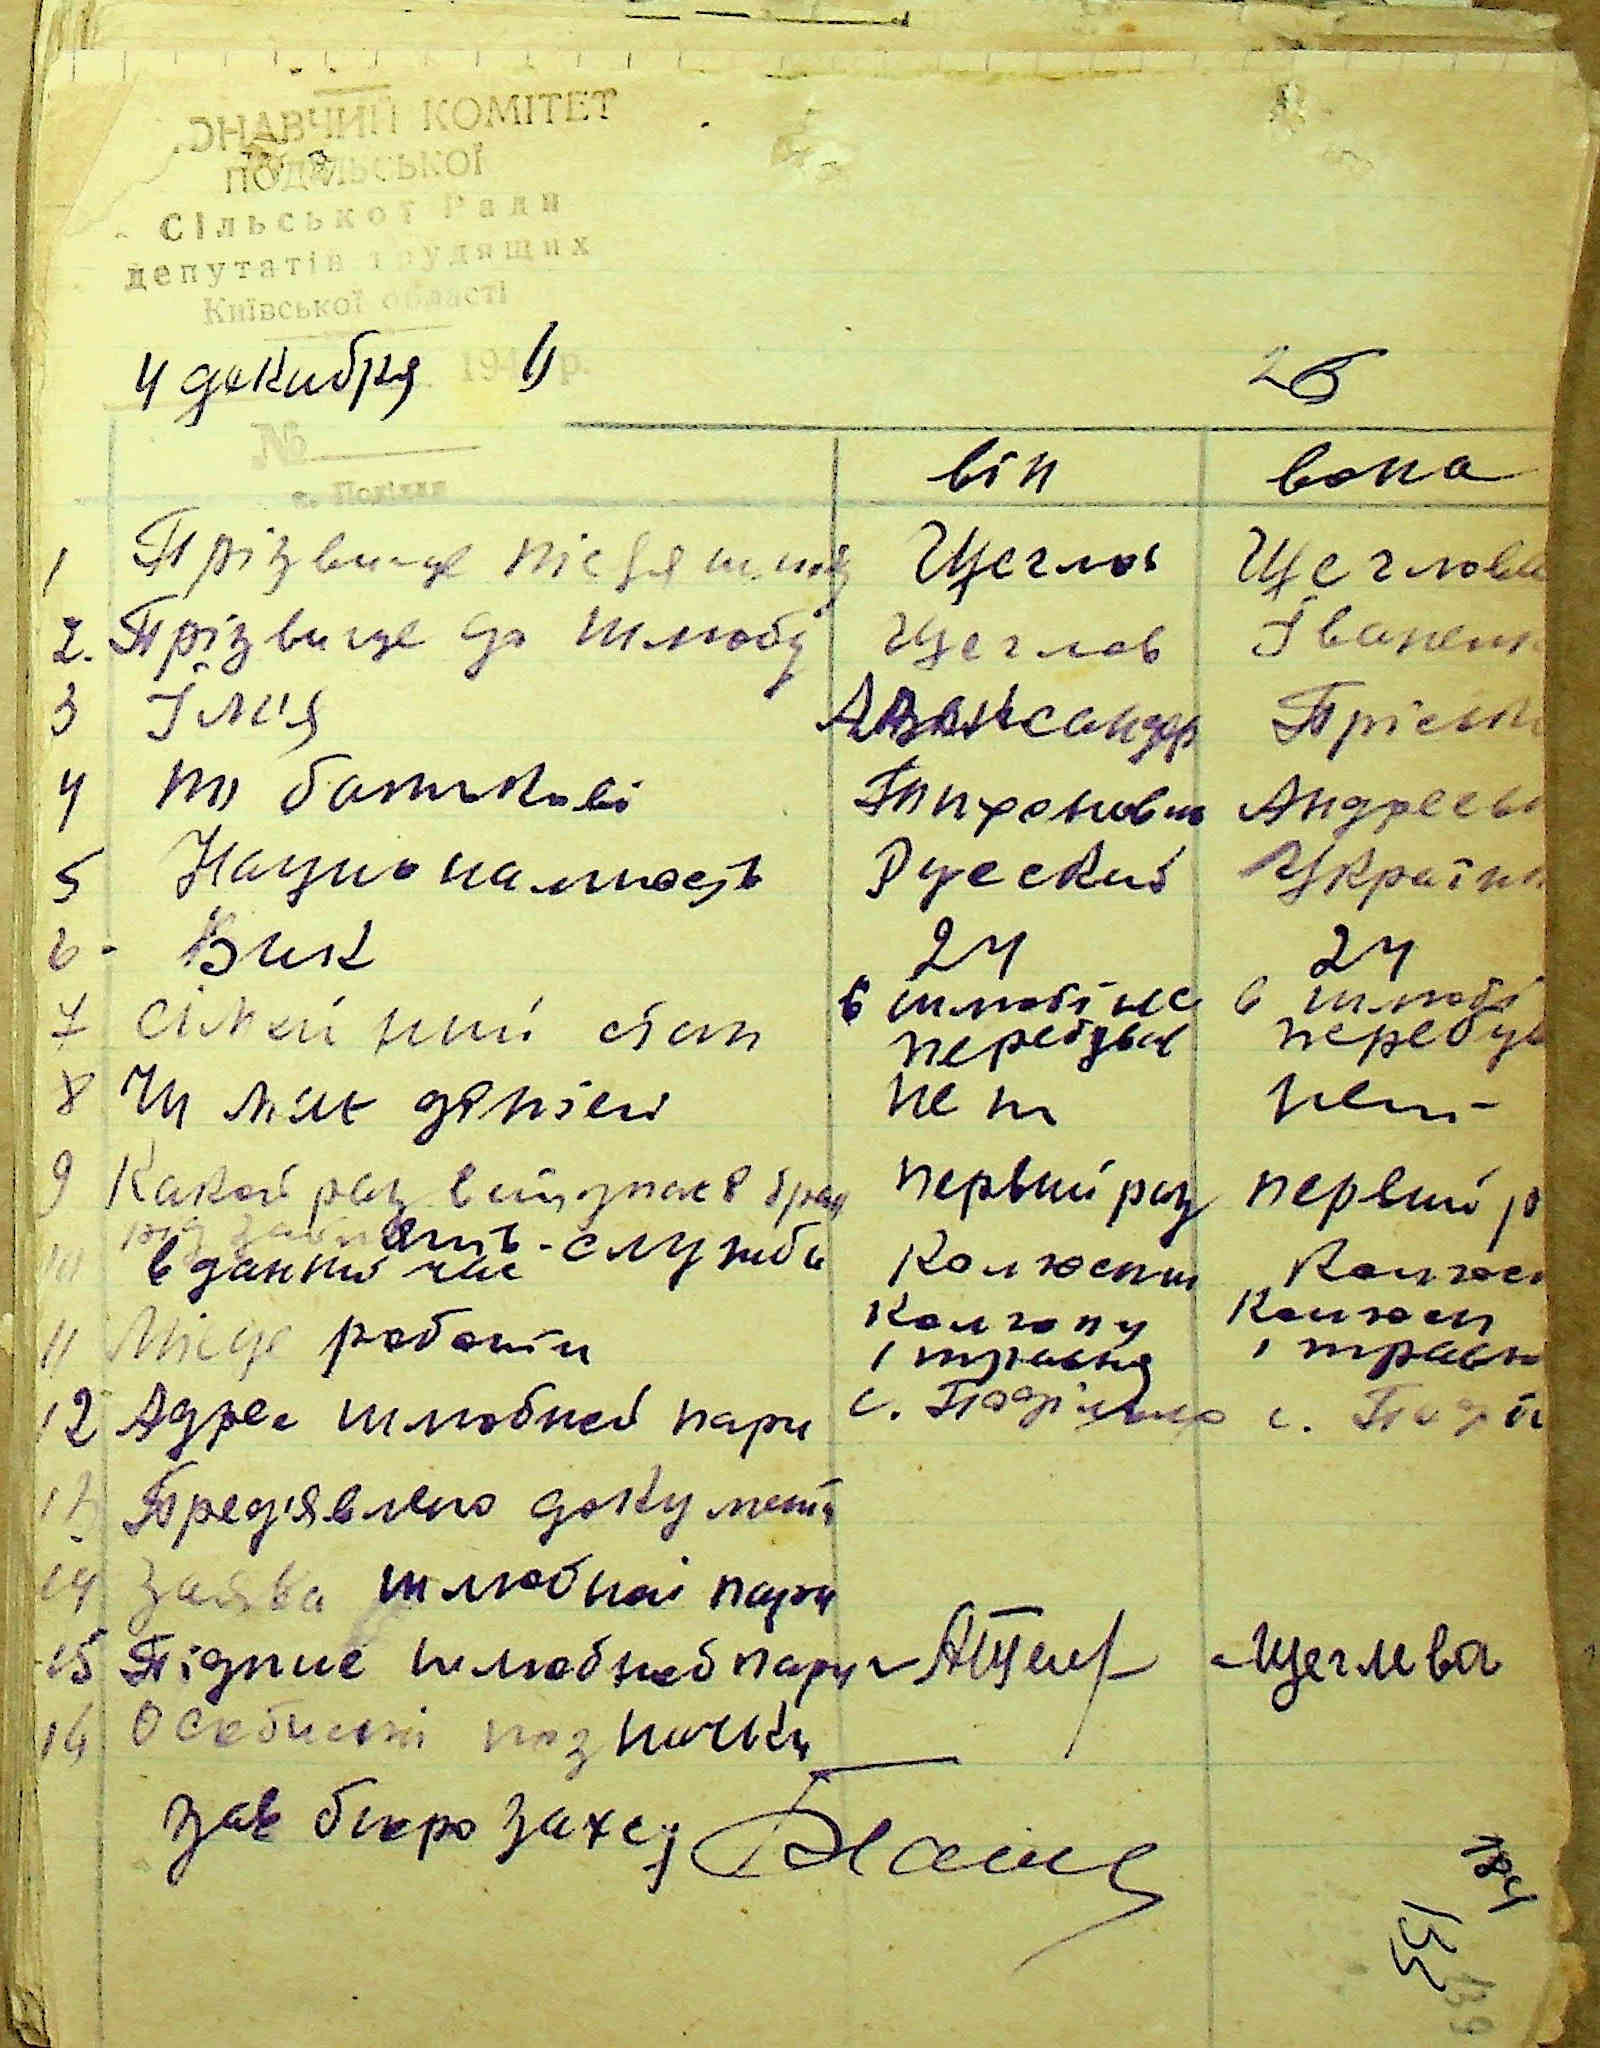 ОНАВЧИЙ КОМІТЕТ
ПОДІЛЬСЬКОЇ
Сільської Ради
депутатів трудящих
Київської області
4 декибря 194 р.
26
№
с. Поділля
він вона
1 Прізвище після шлюбу Щеглов Щеглова
2. Прізвище до шлюбу Щеглов Іваненк
3 Імя Александер Пріськ
4 по батькові Тихонович Андреевн
5 Национальность Русский Українк
6 Вик 24 24
7 сімейний стан в шлюбі не перебував в шлюбі перебув
8 Чи має дітей нет нет
9 Какой раз вступає в брак первый раз первый р
10 вданий час службы Колхосник Колхос
11 Місце роботи Колгосп 1 травня Колхосп 1 травн
12 Адрес шлюбной пари с. Подільля с. Поді
13 Пред'явлено документи
14 Заявка шлюбної пари
15 Підпис шлюбной пари Щеглева
16 Особисті позначки
зав бюро загсу
184
135
139